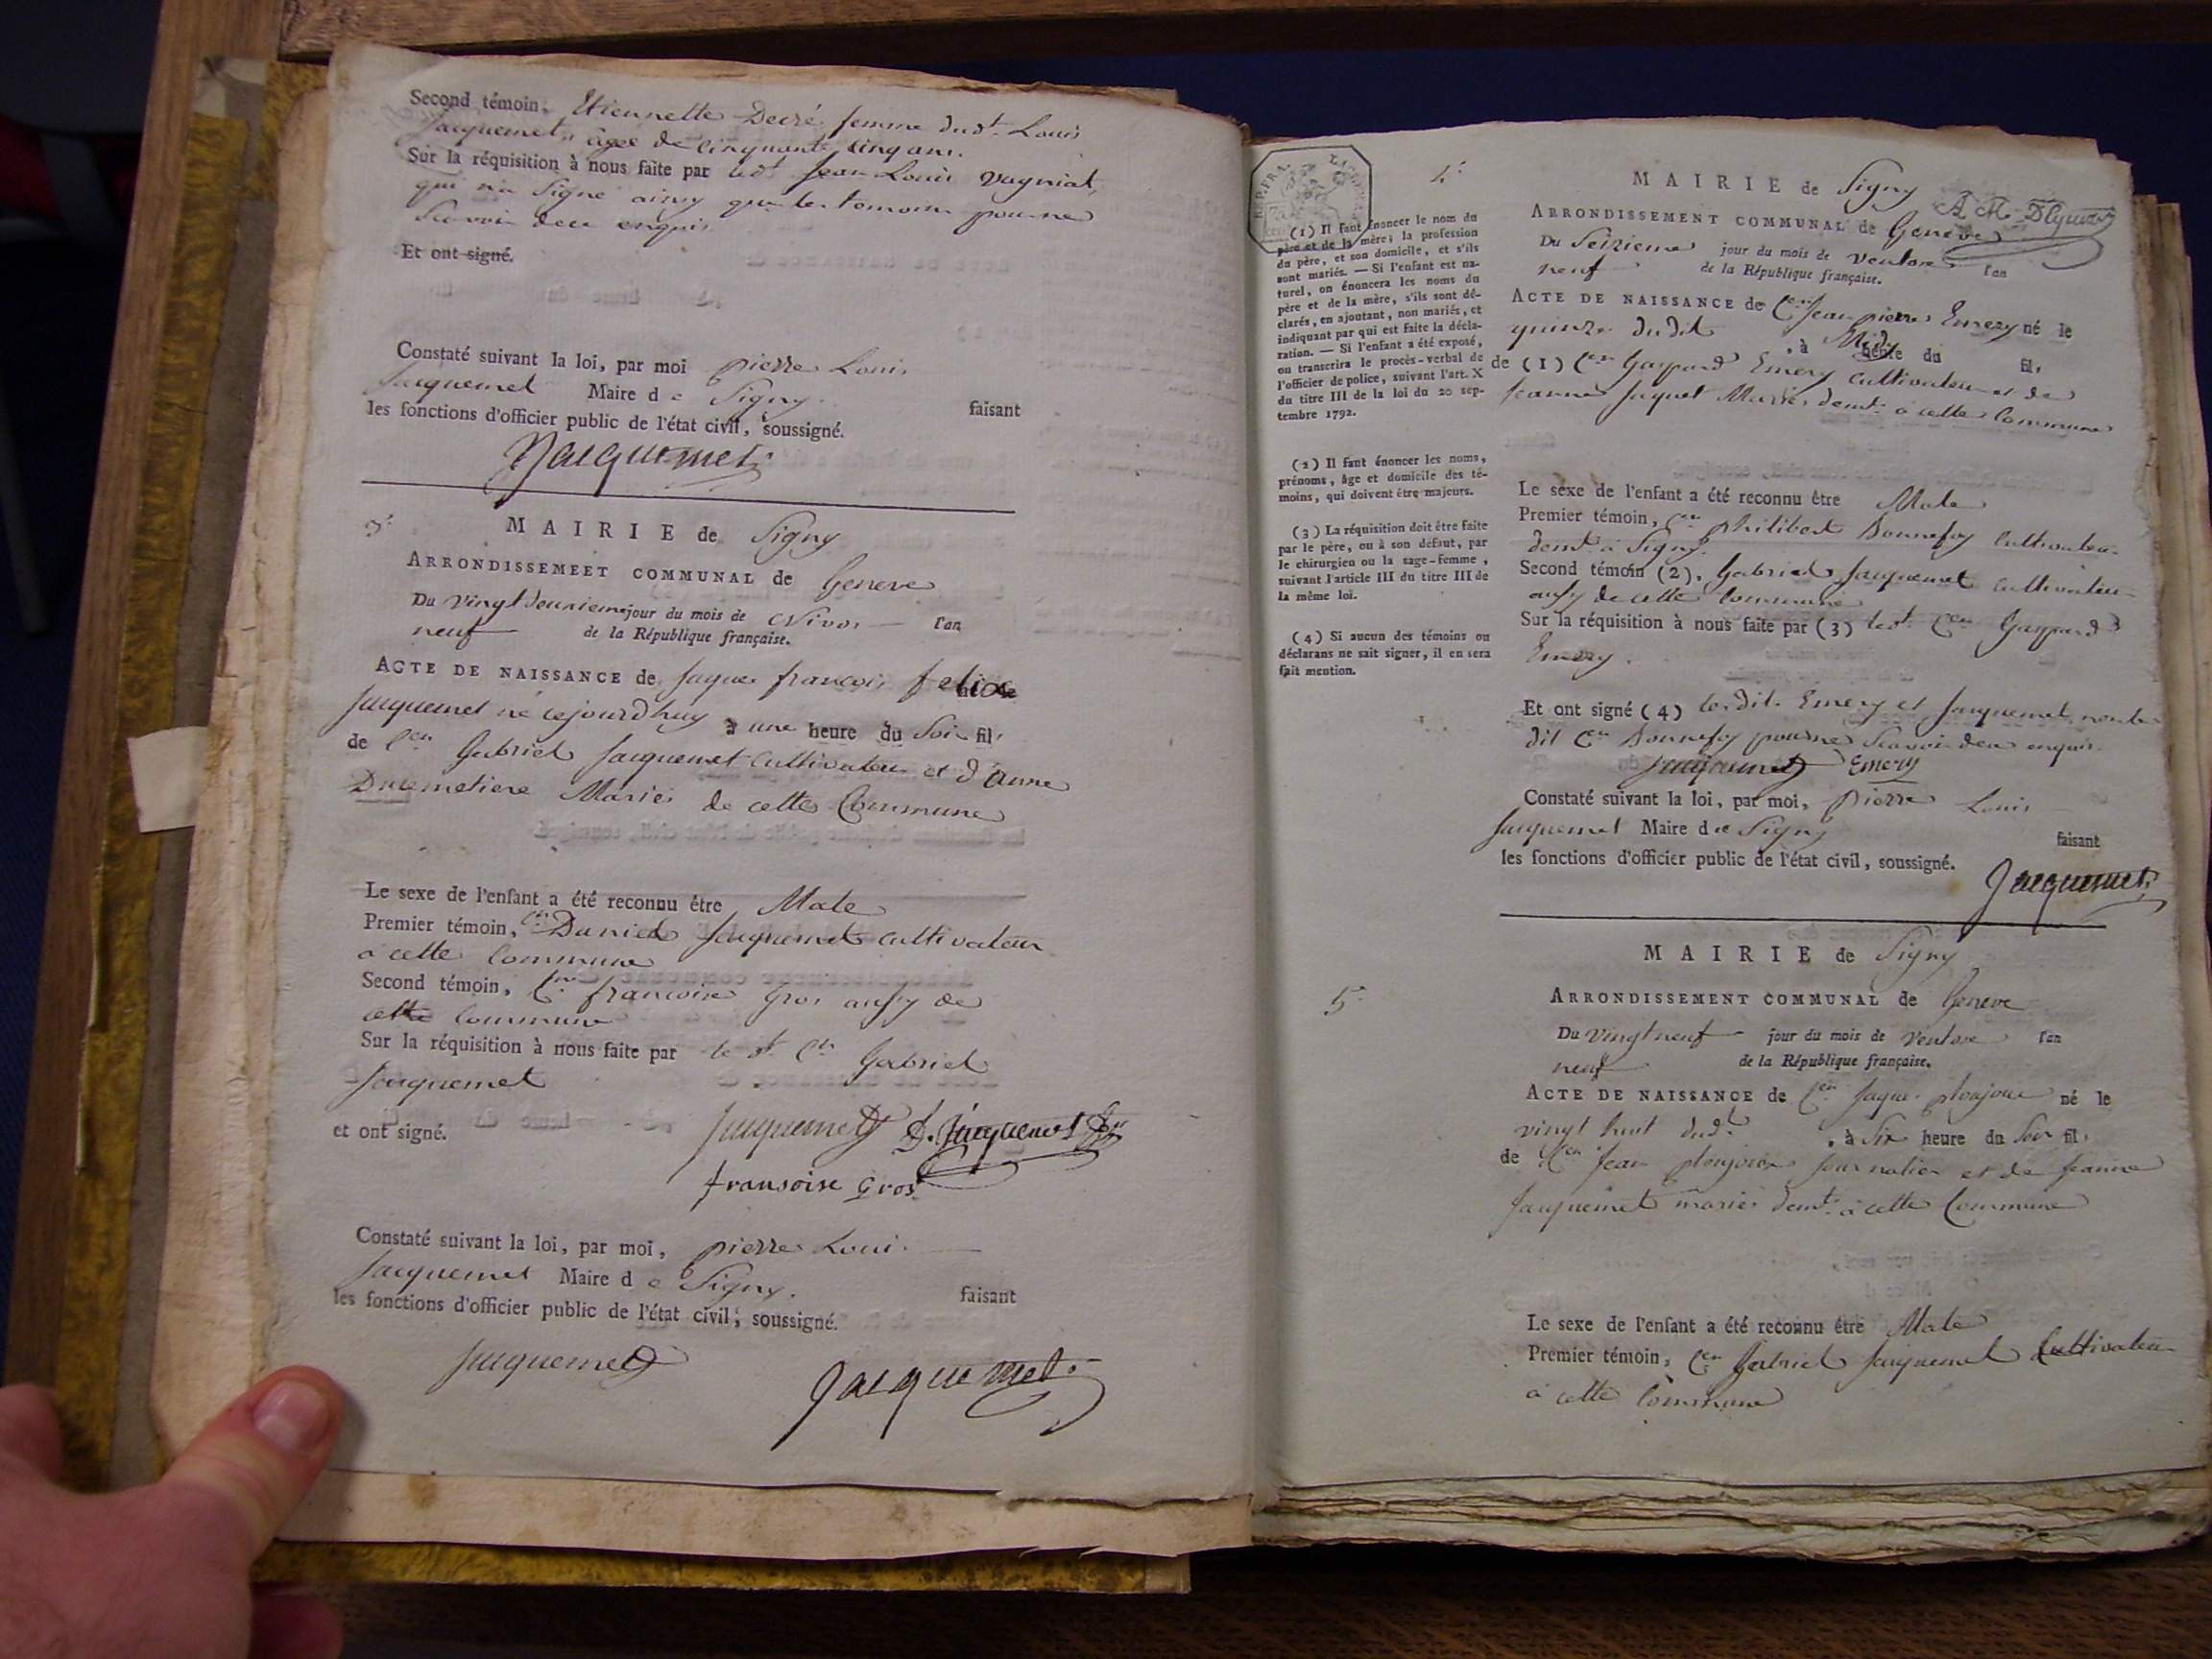 Second témoin, Etiennette Decré femme dudt. Louis
Jacquemet, agée de cinquante cinq ans.
Sur la réquisition à nous faite par ledt. Jean Louis Vagniat,
qui n'a signé ainsy que les temoins pour ne
scavoir de ce enquis
Et ont signé.
Constaté suivant la loi, par moi pierre Louis
Jacquemet Maire de Signy. faisant
les fonctions d'officier public de l'état civil, soussigné.
Jacquemet
3.
MAIRIE de Signy
ARRONDISSEMEET COMMUNAL de Geneve
Du vingt deuxieme jour du mois de Nivos l'an
neuf de la République française.
ACTE DE NAISSANCE de Jaques francois felix
Jacquemet né cejourdhuy à une heure du Soir fils
de Cen Gabriel Jacquemet Cultivateur et d'anne
Ducemetiere Mariés de cette Commune
Le sexe de l'enfant a été reconnu être Male
Premier témoin, Cen Daniel Jacquemet cultivateur
a cette Commune
Second témoin, Cne francoise Gros aussy de
cette Commune
Sur la réquisition à nous faite par le dt Cen Gabriel
Jacquemet
et ont signé. Jacquemet D. Jacquemet
fransoise Gros
Constaté suivant la loi, par moi, pierre Louis
Jacquemet Maire de Signy. faisant
les fonctions d'officier public de l'état civil, soussigné.
Jacquemet Jacquemet
4.
MAIRIE de Signy
ARRONDISSEMENT COMMUNAL de Geneve
Du Seizieme jour du mois de ventose l'an
neuf de la République française.
ACTE DE NAISSANCE de Cen Jean pierre Emery né le
quinze dudit, à Midy heure du fils
de (1) Cen Gaspard Emery cultivateur et de
Jeanne Jaquet Mariés demt. a cette Commune
(1) Il faut énoncer le nom du
père et de la mère; la profession
du père, et son domicile, et s'ils
sont mariés. — Si l'enfant est na-
turel, on énoncera les noms du
père et de la mère, s'ils sont dé-
clarés, en ajoutant, non mariés, et
indiquant par qui est faite la décla-
ration. — Si l'enfant a été exposé,
on transcrira le procès-verbal de
l'officier de police, suivant l'art. X
du titre III de la loi du 20 sep-
tembre 1792.
(2) Il faut énoncer les noms,
prénoms, âge et domicile des té-
moins, qui doivent être majeurs.
(3) La réquisition doit être faite
par le père, ou à son défaut, par
le chirurgien ou la sage-femme,
suivant l'article III du titre III de
la même loi.
(4) Si aucun des témoins ou
déclarans ne sait signer, il en sera
fait mention.
Le sexe de l'enfant a été reconnu être Male
Premier témoin, Cen philibert Bonnefoy Cultivateur
demt. a Signy.
Second témoin (2), Gabriel Jacquemet cultivateur
aussy de cette Commune
Sur la réquisition à nous faite par (3) ledt. Cen Gaspard
Emery.
Et ont signé (4) lesdit. Emery et Jacquemet, non le
dit Cen Bonnefoy pour ne scavoir de ce enquis.
Jacquemet Emery
Constaté suivant la loi, par moi, pierre Louis
Jacquemet Maire de Signy faisant
les fonctions d'officier public de l'état civil, soussigné.
Jacquemet
5.
MAIRIE de Signy
ARRONDISSEMENT COMMUNAL de Geneve
Du vingt neuf jour du mois de ventose l'an
neuf de la République française.
ACTE DE NAISSANCE de Cen Jaques né le
vingt huit dudt, à Six heure du Soir fils
de Cen Jean journalier et de Jeanne
Jacquemet mariés demt. a cette Commune
Le sexe de l'enfant a été reconnu être Male
Premier témoin, Cen Gabriel Jacquemet Cultivateur
a cette Commune